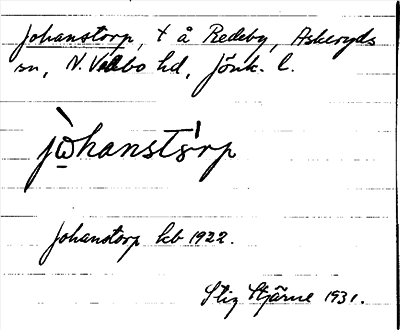 Johanstorp, t å Redeby, Askeryds
sn, N. Vedbo hd, Jönk. l.
jòhanstórp
Johanstorp kb 1922.
Stig Stjärne 1931.